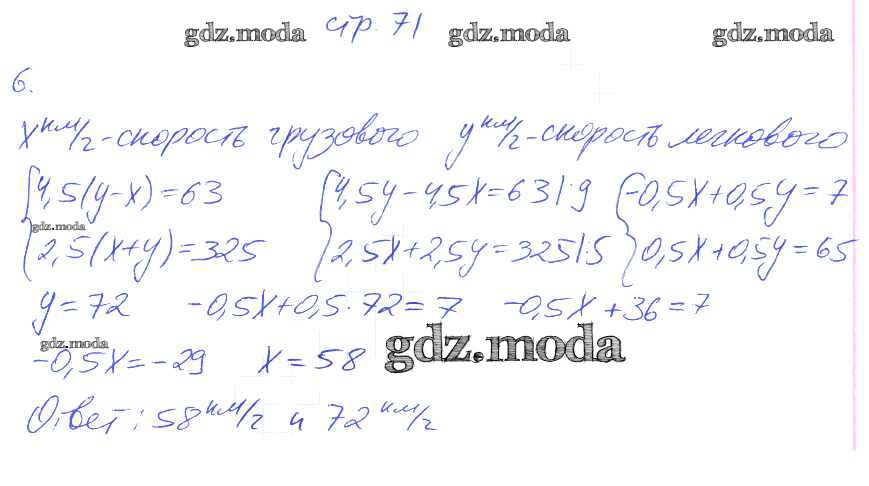 стр. 71
gdz.moda gdz.moda gdz.moda
6.
x км/г - скорость грузового y км/г - скорость легкового
{4,5(y-x)=63 {4,5y-4,5x=63|:9 {-0,5x+0,5y=7
gdz.moda
2,5(x+y)=325 2,5x+2,5y=325|:5 0,5x+0,5y=65
y=72 -0,5x+0,5·72=7 -0,5x+36=7
gdz.moda gdz.moda
-0,5x=-29 x=58
Ответ: 58 км/г и 72 км/г